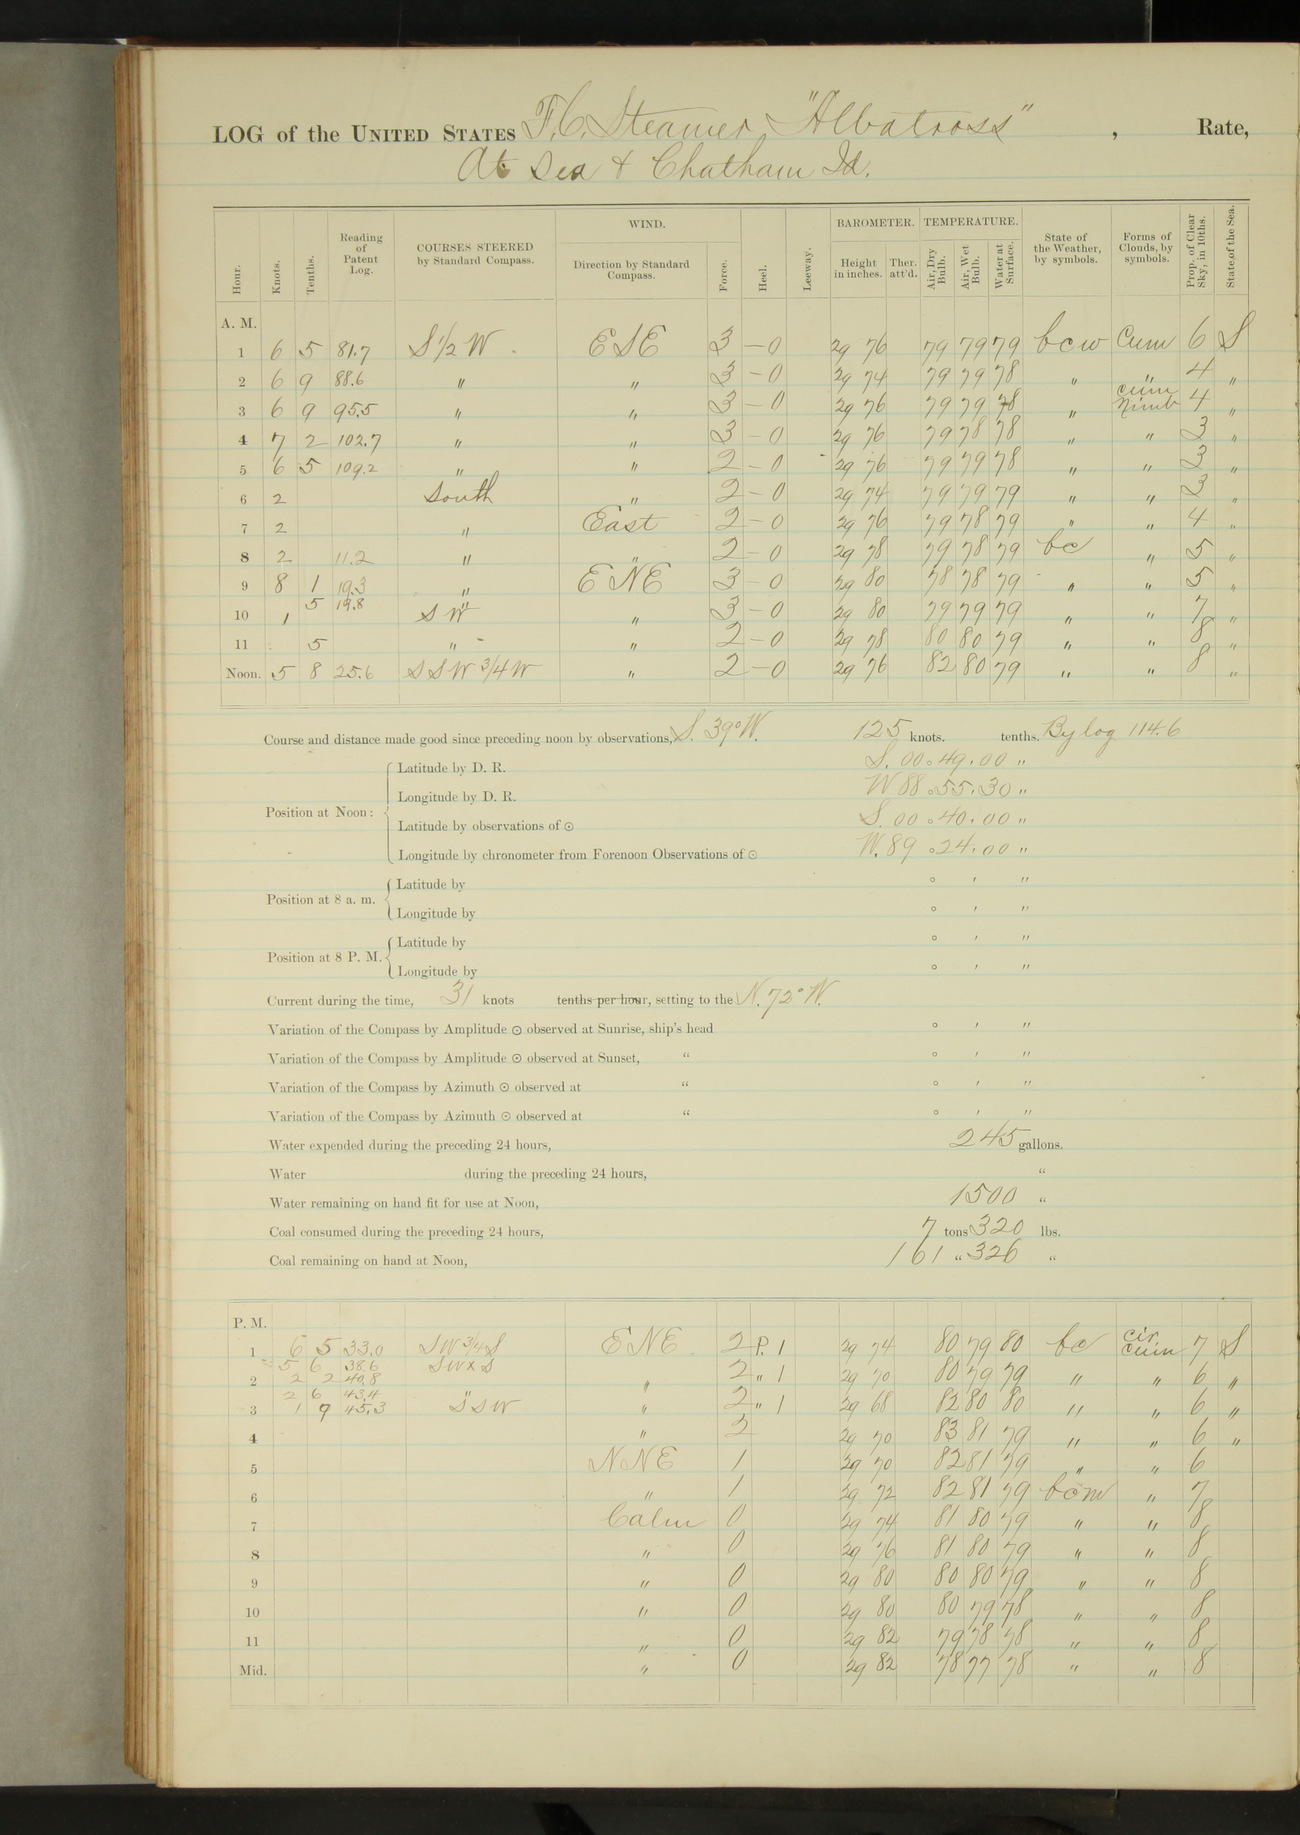 LOG of the UNITED STATES F.C. Steamer "Albatross", Rate,
At Sea & Chatham Id.
Hour. Knots. Tenths. Reading of Patent Log. COURSES STEERED by Standard Compass. WIND. Direction by Standard Compass. Force. Heel. Leeway. BAROMETER. Height in inches. Ther. att'd. TEMPERATURE. Air, Dry Bulb. Air, Wet Bulb. Water at Surface. State of the Weather, by symbols. Forms of Clouds, by symbols. Prop. of Clear Sky, in 10ths. State of the Sea.
A. M.
1 6 5 81.7 S 1/2 W ESE 3 - 0 29 76 79 79 79 bcw Cum 6 S
2 6 9 88.6 " " 3 - 0 29 74 79 79 78 " " 4 "
3 6 9 95.5 " " 3 - 0 29 76 79 79 78 " Cum Nimb 4 "
4 7 2 102.7 " " 3 - 0 29 76 79 78 78 " " 3 "
5 6 5 109.2 " " 2 - 0 29 76 79 79 78 " " 3 "
6 2 South " 2 - 0 29 74 79 79 79 " " 3 "
7 2 " East 2 - 0 29 76 79 78 79 " " 4 "
8 2 11.2 " " 2 - 0 29 78 79 78 79 bc " 5 "
9 8 1 19.3 " ENE 3 - 0 29 80 78 78 79 " " 5 "
10 1 5 19.8 SW " " 3 - 0 29 80 79 79 79 " " 7 "
11 5 " " 2 - 0 29 78 80 80 79 " " 8 "
Noon. 5 8 25.6 SSW 3/4 W " 2 - 0 29 76 82 80 79 " " 8 "
Course and distance made good since preceding noon by observations, S. 39° W. 125 knots. tenths. By log 114.6
Latitude by D. R. S. 00 ° 49 ' 00 "
Longitude by D. R. W 88 ° 55 ' 30 "
Position at Noon:
Latitude by observations of ☉ S. 00 ° 40 ' 00 "
Longitude by chronometer from Forenoon Observations of ☉ W. 89 ° 24 ' 00 "
Latitude by ° ' "
Position at 8 a. m.
Longitude by ° ' "
Latitude by ° ' "
Position at 8 P. M.
Longitude by ° ' "
Current during the time, 31 knots tenths per hour, setting to the N. 72° W.
Variation of the Compass by Amplitude ☉ observed at Sunrise, ship's head ° ' "
Variation of the Compass by Amplitude ☉ observed at Sunset, " ° ' "
Variation of the Compass by Azimuth ☉ observed at " ° ' "
Variation of the Compass by Azimuth ☉ observed at " ° ' "
Water expended during the preceding 24 hours, 245 gallons.
Water during the preceding 24 hours, "
Water remaining on hand fit for use at Noon, 1500 "
Coal consumed during the preceding 24 hours, 7 tons 320 lbs.
Coal remaining on hand at Noon, 161 " 326 "
P. M.
1 6 5 33.0 SW 3/4 S ENE 2 P. 1 29 74 80 79 80 bc Cir. Cum 7 S
5 6 38.6 SW x S
2 2 2 40.8 " 2 " 1 29 70 80 79 79 " " 6 "
2 6 43.4 "
3 1 9 45.3 SSW " 2 " 1 29 68 82 80 80 " " 6 "
4 " 2 29 70 83 81 79 " " 6 "
5 NNE 1 29 70 82 81 79 " " 6
6 " 1 29 72 82 81 79 bcm " 7
7 Calm 0 29 74 81 80 79 " " 8
8 " 0 29 76 81 80 79 " " 8
9 " 0 29 80 80 80 79 " " 8
10 " 0 29 80 80 79 78 " " 8
11 " 0 29 82 79 78 78 " " 8
Mid. " 0 29 82 78 77 78 " " 8